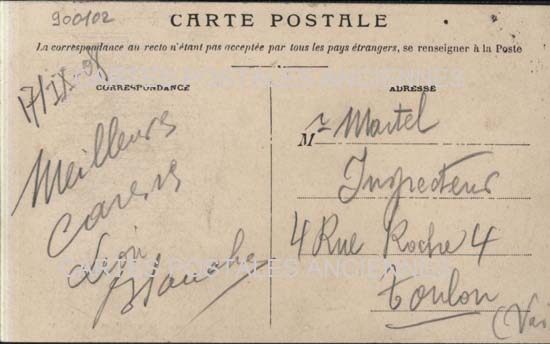 900102
CARTE POSTALE
La correspondance au recto n'étant pas acceptée par tous les pays étrangers, se renseigner à la Poste
CORRESPONDANCE
ADRESSE
17/IX
Meilleurs
Blanche
CARTES POSTALES ANCIENNES
Mr Martel
Inspecteur
4 Rue Roche 4
Toulon
(Var
CARTES POSTALES ANCIENNES